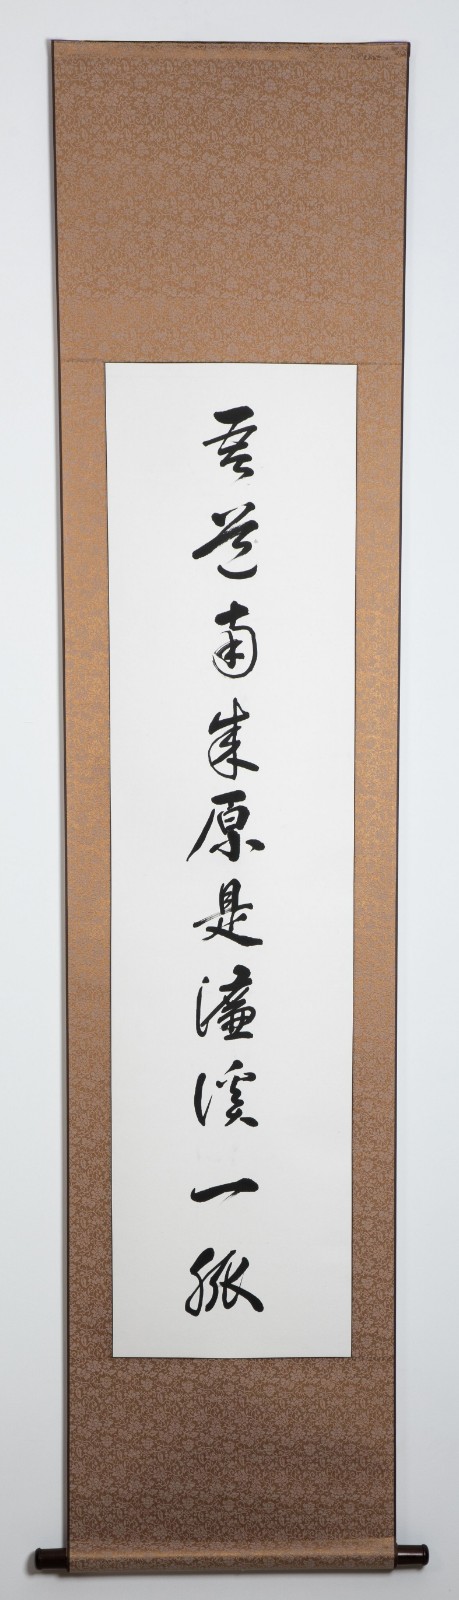 吾道南來原是濂溪一脈